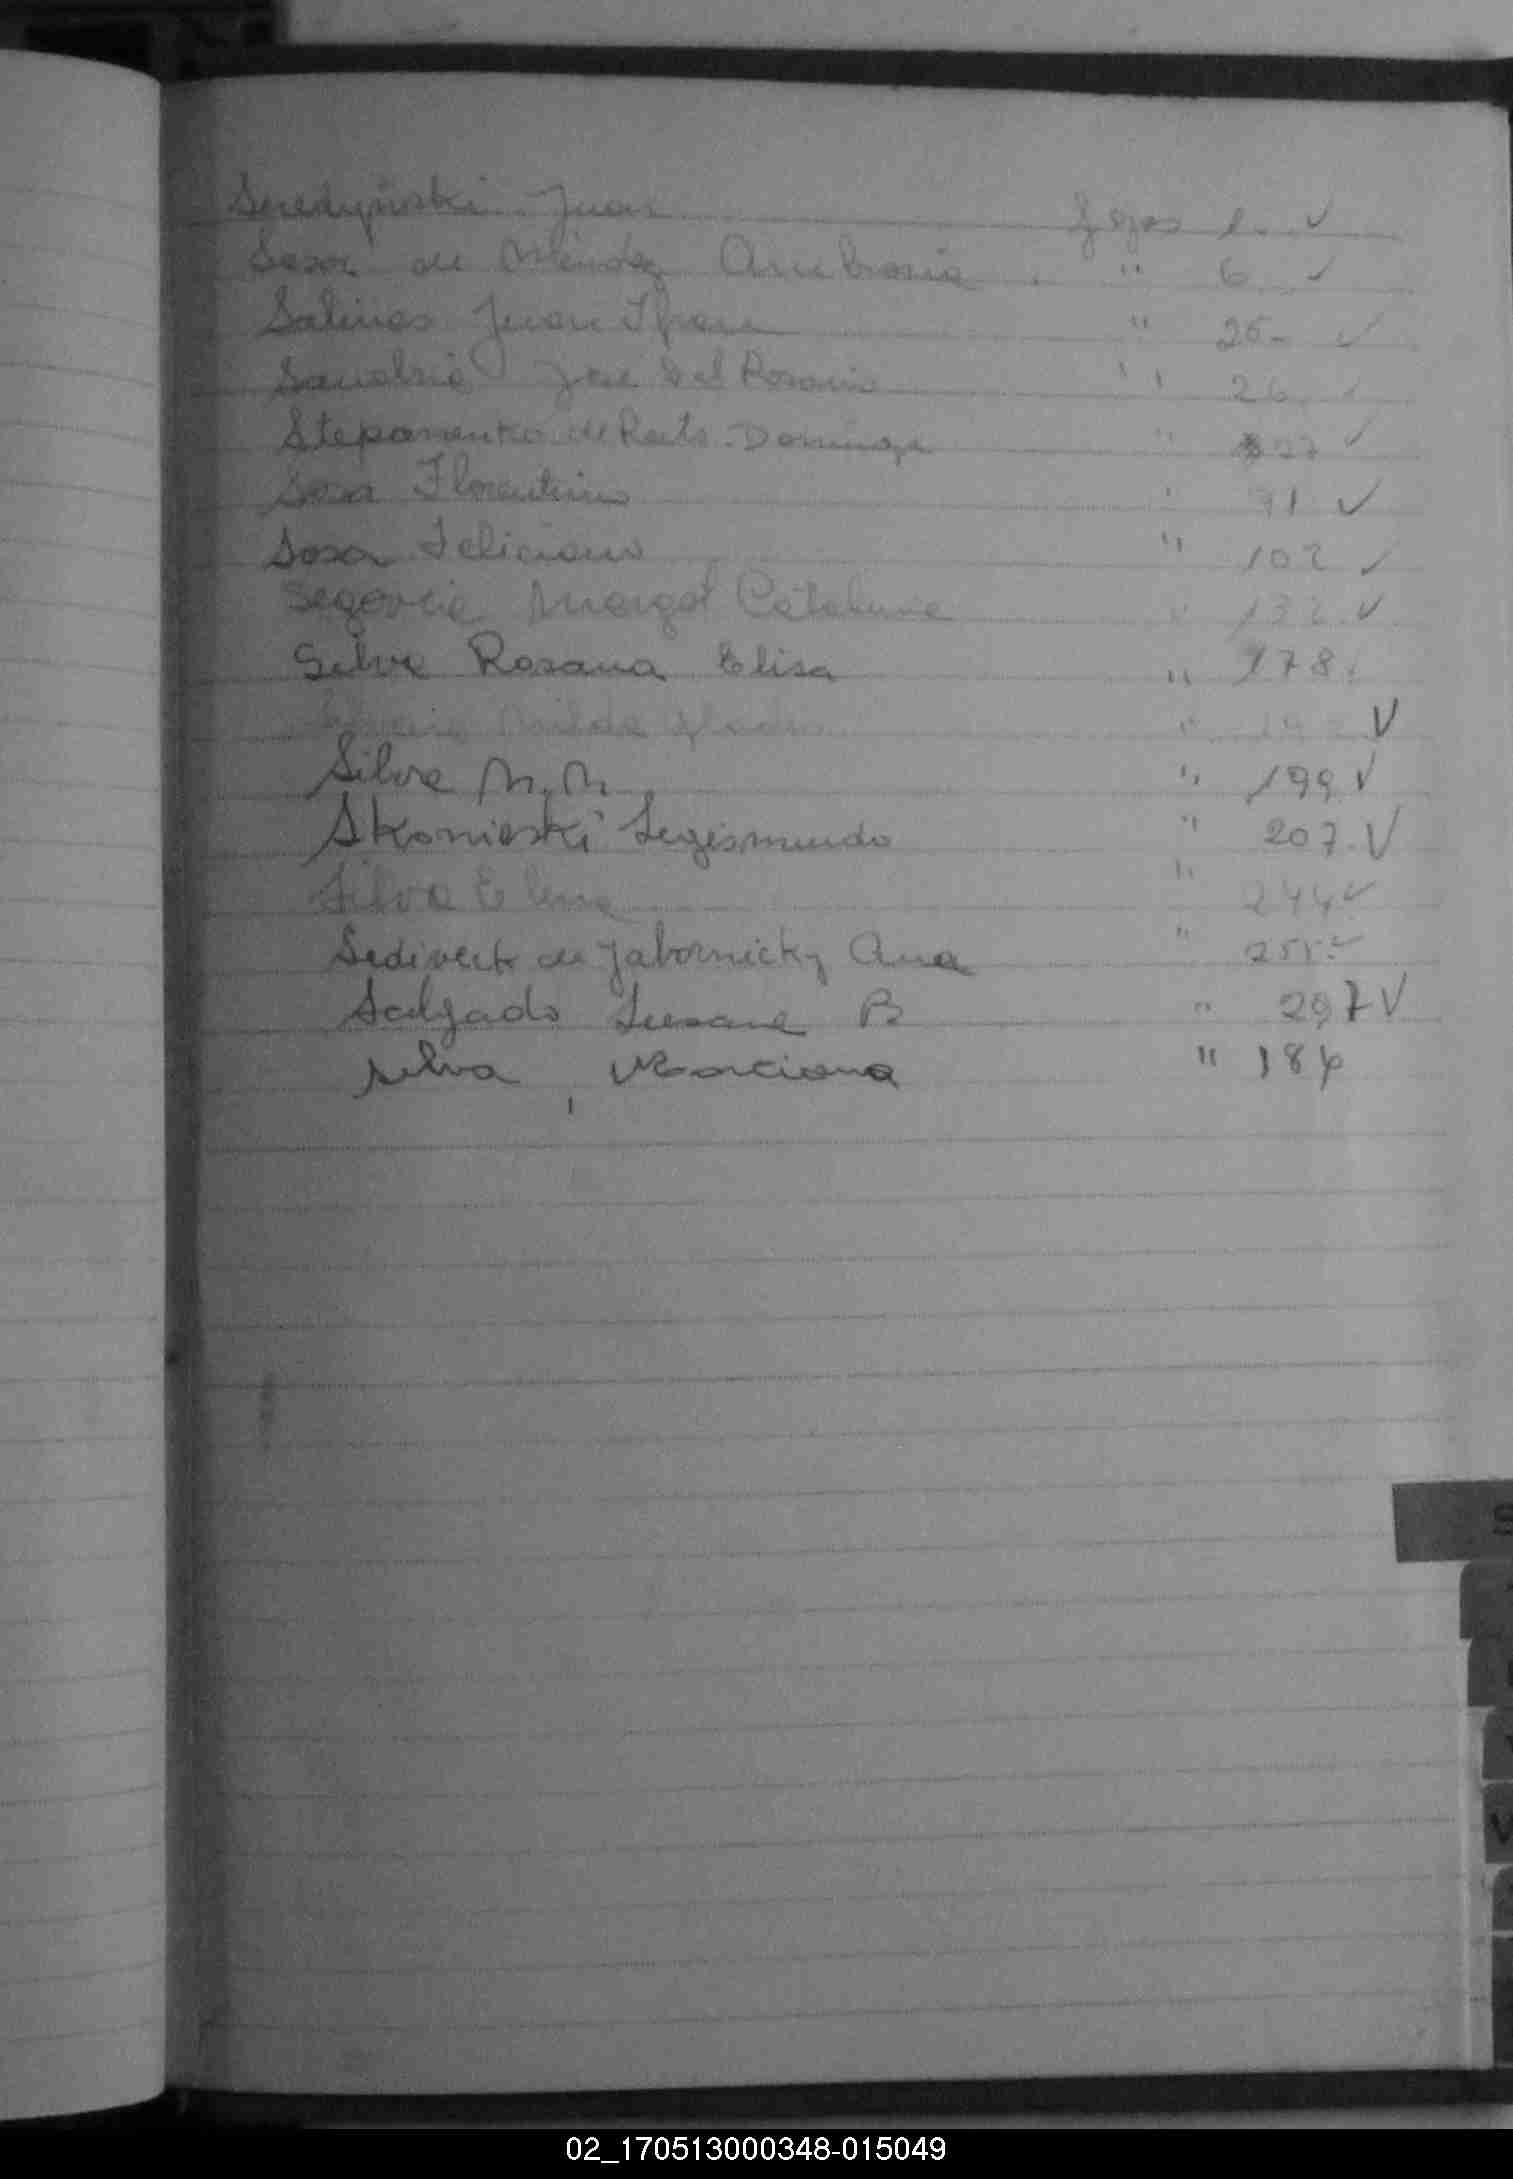 Seredyñski Juan Fojas 1. ✓
Sosa de Méndez Ambrosia " 6 ✓
Salinas Juan " 25- ✓
Sanabria José del Rosario " 26 ✓
Stepanenko de Dominga " 27 ✓
Sosa Florentino " 71 ✓
Sosa Feliciano " 102 ✓
Segovia Margot Catalina " 132 ✓
Silva Rosana Elisa " 178.
Gladis " ✓
Silva M. M. " 199 ✓
Skonieski Segismundo " 207. ✓
Silva Elena " 244 ✓
de Jabornicky Ana " 255 ✓
Salgado Susana B " 297 ✓
Silva, Marciana " 184
S
V
02_170513000348-015049